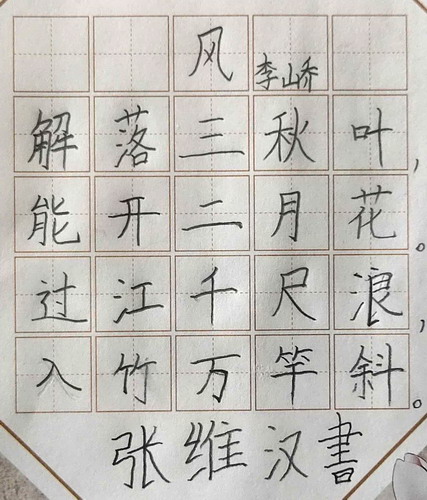 风
李山乔
解落三秋叶，
能开二月花。
过江千尺浪，
入竹万竿斜。
张维汉書